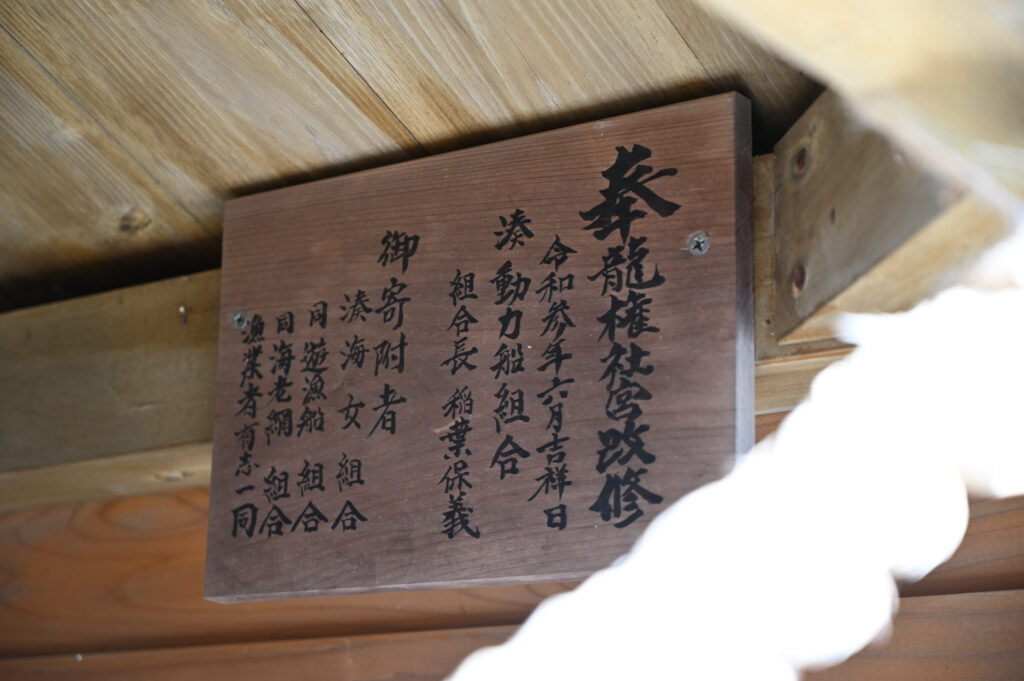 奉龍権社宮改修
令和参年六月吉祥日
湊動力船組合
組合長 稲葉保義
御寄附者
湊海女 組合
同遊漁船 組合
同海老網 組合
漁業者有志一同